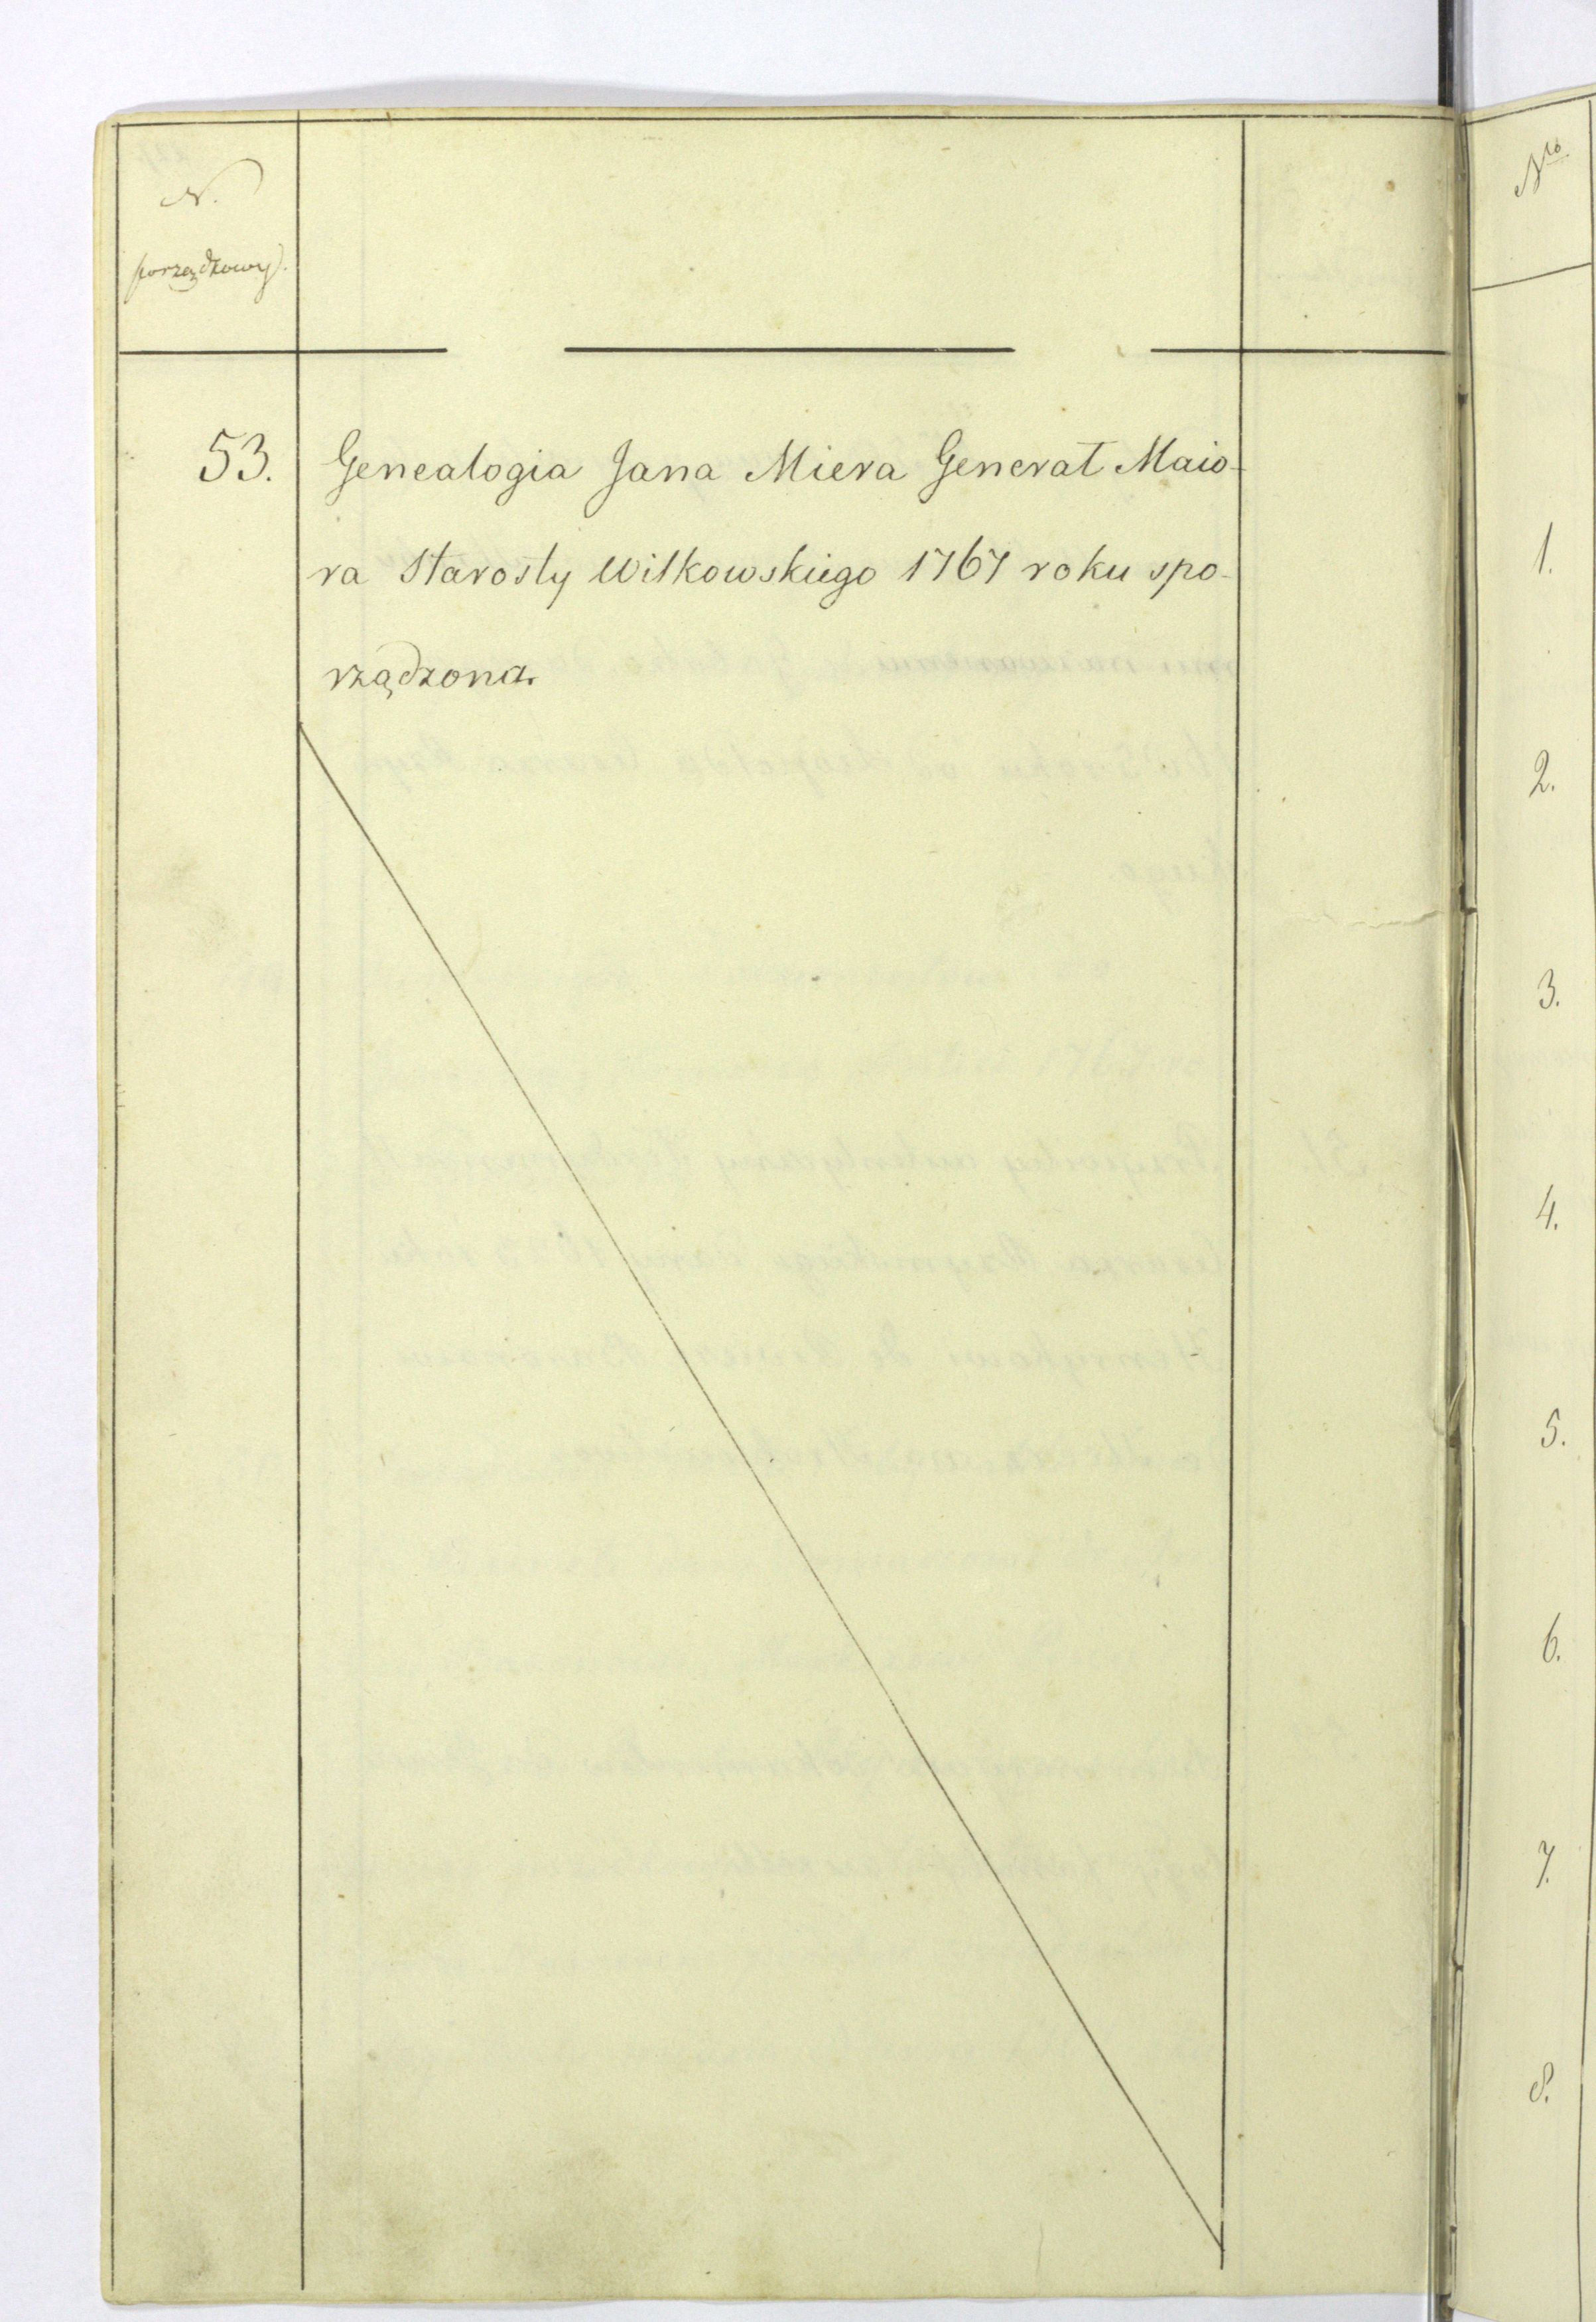 N.
porządkowy.
53. Genealogia Jana Miera Generał Maio-
ra Starosty Wilkowskiego 1767 roku spo-
rządzona.
Nro
1.
2.
3.
4.
5.
6.
7.
8.